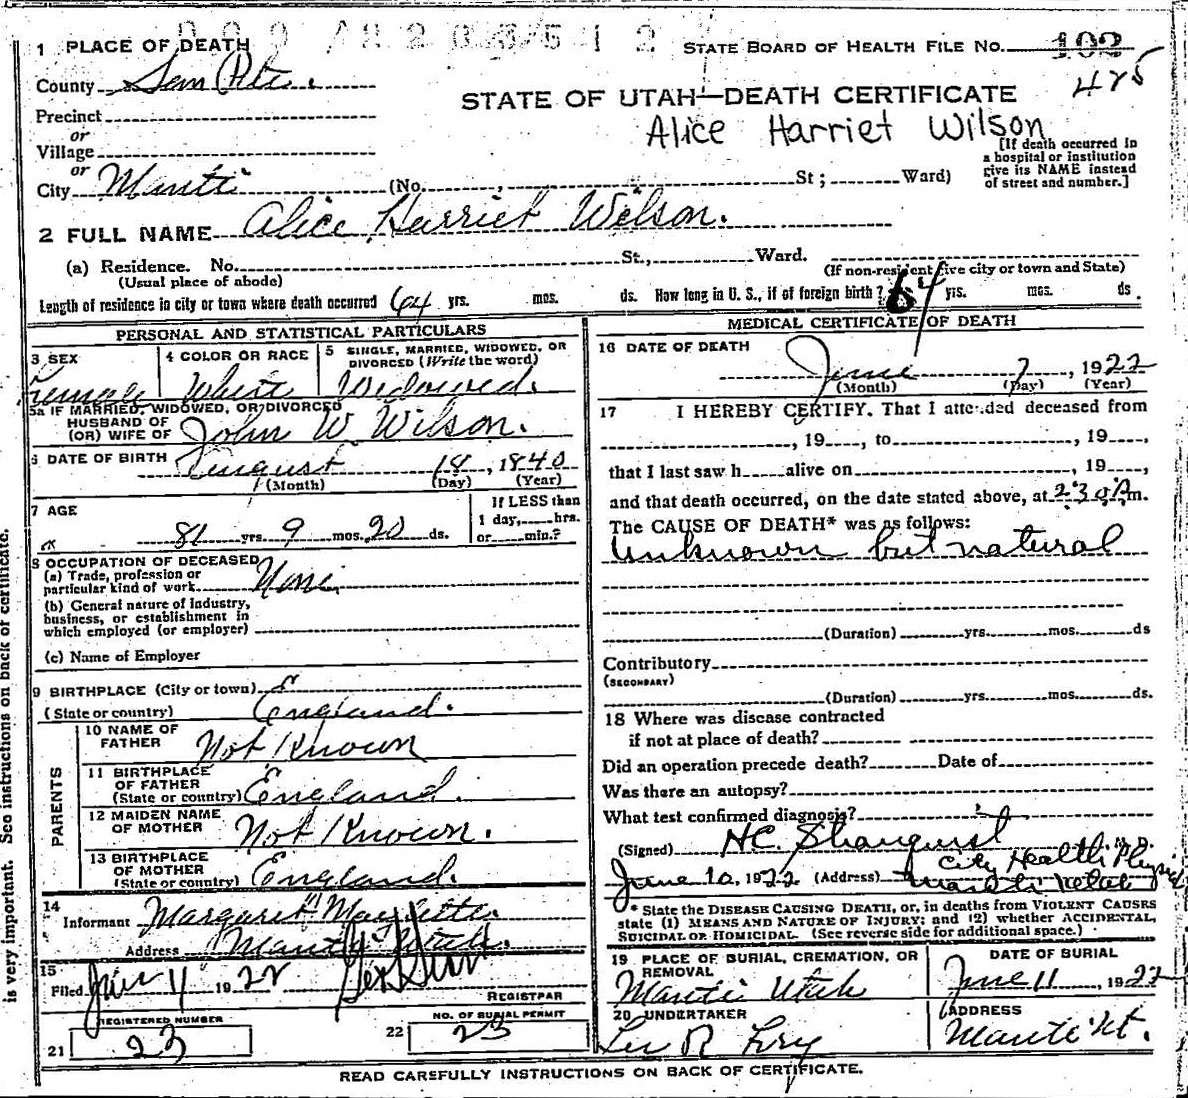 1 PLACE OF DEATH
STATE BOARD OF HEALTH FILE No. 102
425
County San Pete.
STATE OF UTAH—DEATH CERTIFICATE
Precinct
Alice Harriet Wilson
or
Village
[If death occurred in a hospital or institution give its NAME instead of street and number.]
or
City Manti (No. , St ; Ward)
2 FULL NAME Alice Harriet Wilson.
(a) Residence. No. St., Ward.
(Usual place of abode) (If non-resident give city or town and State)
Length of residence in city or town where death occurred 64 yrs. mos. ds. How long in U. S., if of foreign birth? 64 yrs. mos. ds.
PERSONAL AND STATISTICAL PARTICULARS
3 SEX
Female
4 COLOR OR RACE
White
5 SINGLE, MARRIED, WIDOWED, OR DIVORCED (Write the word)
Widowed.
5a IF MARRIED, WIDOWED, OR DIVORCED
HUSBAND OF
(OR) WIFE OF John W. Wilson.
6 DATE OF BIRTH August 18, 1840
(Month) (Day) (Year)
7 AGE
81 yrs. 9 mos. 20 ds.
If LESS than
1 day, hrs.
or min.?
8 OCCUPATION OF DECEASED
(a) Trade, profession or
particular kind of work None
(b) General nature of Industry,
business, or establishment in
which employed (or employer)
(c) Name of Employer
9 BIRTHPLACE (City or town)
(State or country) England.
PARENTS
10 NAME OF
FATHER Not Known
11 BIRTHPLACE
OF FATHER
(State or country) England.
12 MAIDEN NAME
OF MOTHER Not Known.
13 BIRTHPLACE
OF MOTHER
(State or country) England.
14
Informant Margaret
Address Manti Utah.
15
Filed June 11 1922
REGISTRAR
REGISTERED NUMBER
21 23
NO. OF BURIAL PERMIT
22 23
MEDICAL CERTIFICATE OF DEATH
16 DATE OF DEATH
June 7, 1922
(Month) (Day) (Year)
17 I HEREBY CERTIFY, That I attended deceased from
, 19 , to , 19 ,
that I last saw h alive on , 19 ,
and that death occurred, on the date stated above, at 2:30 m.
The CAUSE OF DEATH* was as follows:
Unknown but natural
(Duration) yrs. mos. ds
Contributory
(SECONDARY)
(Duration) yrs. mos. ds.
18 Where was disease contracted
if not at place of death?
Did an operation precede death? Date of
Was there an autopsy?
What test confirmed diagnosis?
(Signed) H.C. M.D.
City Health Physic
June 10, 1922 (Address) Manti Utah
* State the DISEASE CAUSING DEATH, or, in deaths from VIOLENT CAUSES
state (1) MEANS AND NATURE OF INJURY; and (2) whether ACCIDENTAL,
SUICIDAL OR HOMICIDAL. (See reverse side for additional space.)
19 PLACE OF BURIAL, CREMATION, OR
REMOVAL
Manti Utah
DATE OF BURIAL
June 11, 1922
20 UNDERTAKER
ADDRESS
Manti Ut.
READ CAREFULLY INSTRUCTIONS ON BACK OF CERTIFICATE.
is very important. See instructions on back of certificate.